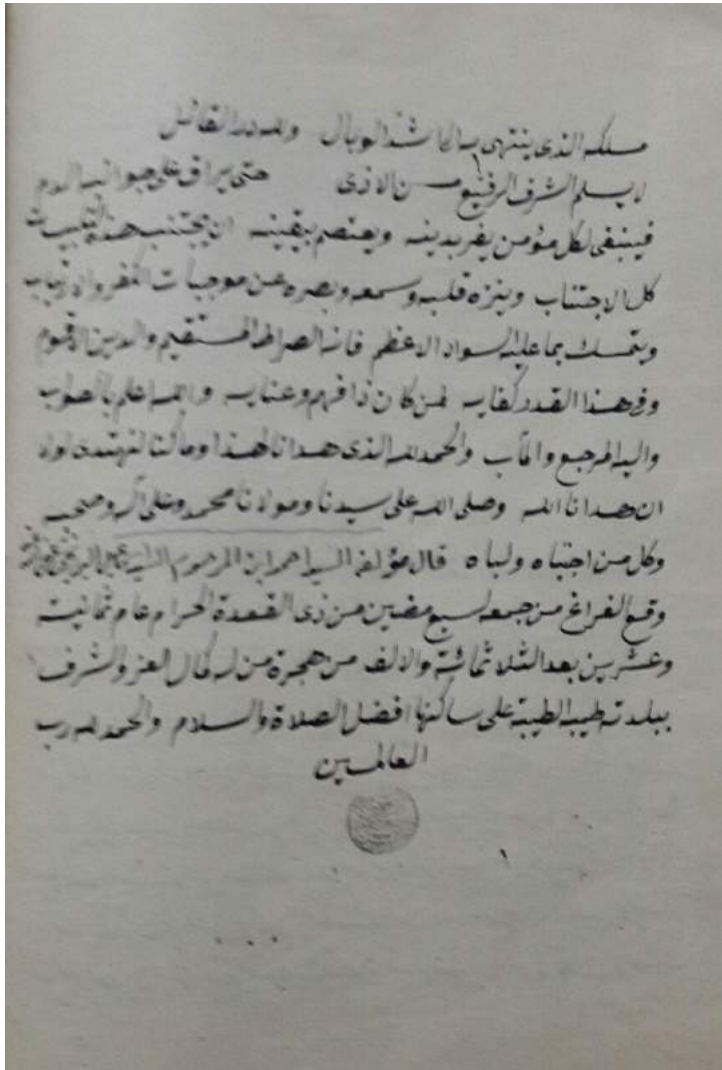 مسلكه الذى ينتهى بسالكه اشد الوبال ولله در القائل
لا يسلم الشرف الرفيع من الاذى حتى يراق على جوانبه الدم
فينبغى لكل مؤمن يفر بدينه ويعتصم بيقينه ان يجتنب هذه
كل الاجتناب وينزه قلبه وسمعه وبصره عن موجبات الكفر والارتياب
ويتمسك بما عليه السواد الاعظم فانه الصراط المستقيم والدين الاقوم
وفى هذا القدر كفايه لمن كان ذا فهم وعنايه والله اعلم بالصواب
واليه المرجع والمآب والحمد لله الذى هدانا لهذا وما كنا لنهتدى لولا
ان هدانا الله وصلى الله على سيدنا ومولانا محمد وعلى آله وصحبه
وكل من اجتباه ولباه قال مؤلفه السيد احمد ابن المرحوم السيد
وقع الفراغ من جمعه لسبع مضين من ذى القعدة الحرام عام ثمانية
وعشرين بعد الثلاثمائة والالف من هجرة من له كمال العز والشرف
ببلدته طيبه الطيبة على ساكنها افضل الصلاة والسلام والحمد لله رب
العالمين